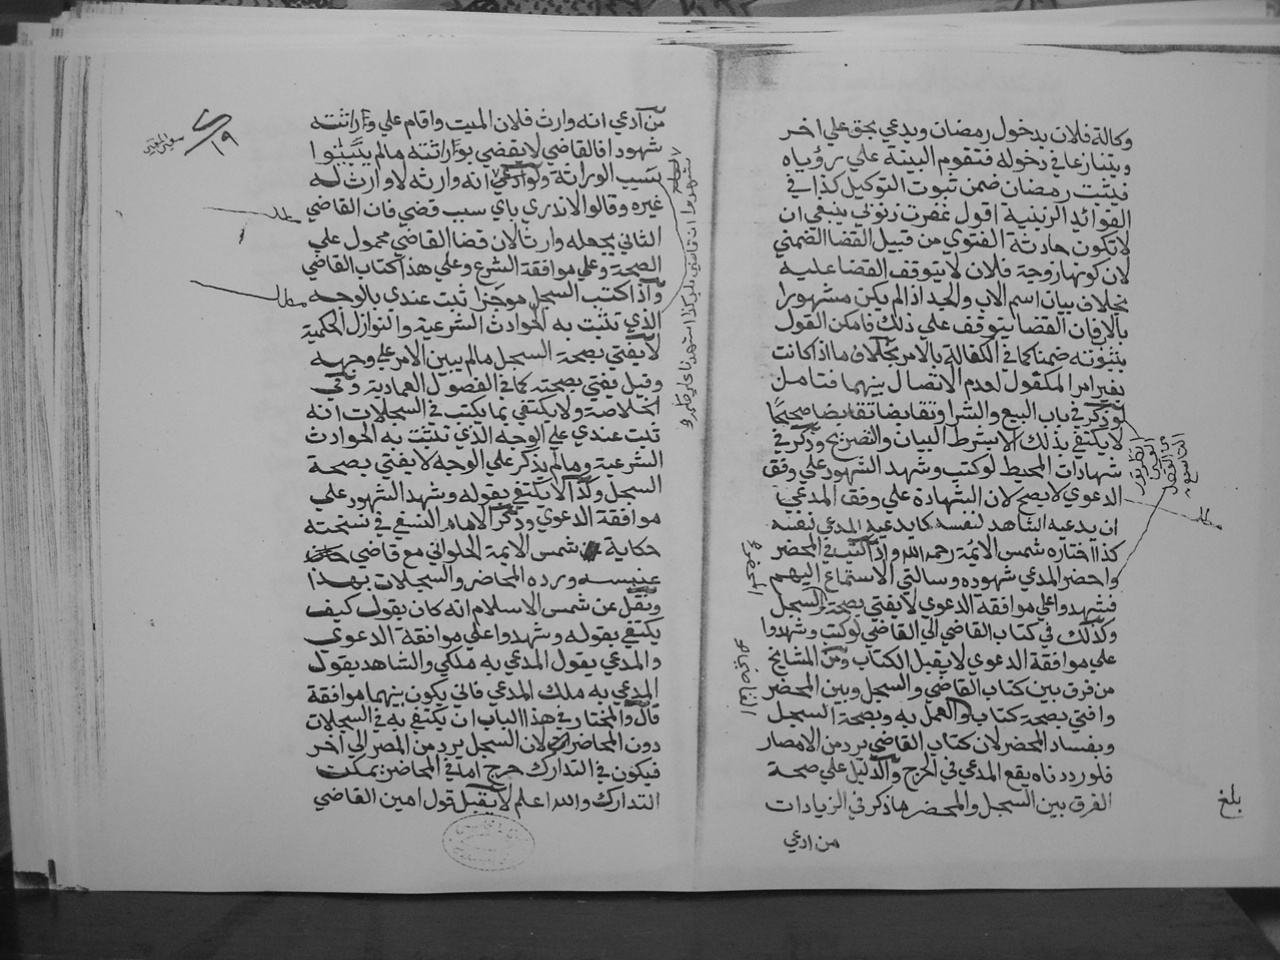 وكالة فلان بدخول رمضان ويدعي بحق علي اخر
ويتنازعا في دخوله فتقوم البينة علي رؤياه
فيثبت رمضان ضمن ثبوت التوكيل كذا في
الفوائد الزينية اقول غفرت ذنوبي ينبغي ان
لا تكون حادثة الفتوي من قبيل القضا الضمني
لان كونها زوجة فلان لا يتوقف القضا عليه
بخلاف بيان اسم الاب والجد اذا لم يكن مشهورا
بالاب فان القضا يتوقف علي ذلك فامكن القول
بثبوته ضمنا كما في الكفالة بالامر بخلاف ما اذا كانت
بغير امر المكفول لعدم الاتصال بينهما فتامل
لو ذكر في باب البيع والشرا وتقابضا تقابضا صحيحا
لا يكتفي بذلك لاشترط البيان والتصريح وذكر في
شهادات المحيط لو كتب وشهد الشهود علي وفق
الدعوي لا يصح لان الشهادة علي وفق المدعي
ان يدعيه الشاهد لنفسه كما يدعيه المدعي لنفسه
كذا اختاره شمس الائمة رحمه الله واذا كتب في المحضر
واحضر المدعي شهوده وسالني الاستماع اليهم
فشهدوا علي موافقة الدعوي لا يفتي بصحة السجل
وكذلك في كتاب القاضي الي القاضي لو كتب وشهدوا
علي موافقة الدعوي لا يقبل الكتاب ومن المشايخ
من فرق بين كتاب القاضي والسجل وبين المحضر
وافتي بصحة كتاب والعمل به وبصحة السجل
وبفساد المحضر لان كتاب القاضي يرد من الامصار
فلو رددناه يقع المدعي في الحرج والدليل علي صحة
الفرق بين السجل والمحضر ما ذكر في الزيادات
من ادعي
المحضر
القاضي
بلغ
من ادعي انه وارث فلان الميت واقام علي وراثته
شهودا فالقاضي لا يقضي بوراثته مالم يبينوا
بسبب الوراثة ولو ادعي انه وارثه لا وارث له
غيره وقالوا لا ندري باي سبب قضي فان القاضي
الثاني يجعله وارثا لان قضا القاضي محمول علي
الصحة وعلي موافقة الشرع وعلي هذا كتاب القاضي
واذا كتب السجل موجزا ثبت عندي بالوجه
الذي تثبت به الحوادث الشرعية والنوازل الحكمية
لا يفتي بصحة السجل مالم يبين الامر علي وجهه
وقيل يفتي بصحته كما في الفصول العمادية وفي
الخلاصة ولا يكتفي بما يكتب في السجلات انه
ثبت عندي علي الوجه الذي تثبت به الحوادث
الشرعية ومالم يذكر علي الوجه لا يفتي بصحة
السجل وكذا لا يكتفي بقوله وشهد الشهود علي
موافقة الدعوي وذكر الامام النسفي في نسخته
حكاية شمس الايمة الحلواني مع قاضي
عنبسه ورده المحاضر والسجلات بهذا
ونقل عن شمس الاسلام انه كان يقول كيف
يكتفي بقوله وشهدوا علي موافقة الدعوي
والمدعي يقول المدعي به ملكي والشاهد يقول
المدعي به ملك المدعي فاني يكون بينهما موافقة
قال والمختار في هذا الباب ان يكتفي به في السجلات
دون المحاضر لان السجل يرد من المصر الي اخر
فيكون في التدارك حرج اما في المحاضر يمكن
التدارك والله اعلم لا يقبل قول امين القاضي
مطلب
مطلب
١٩